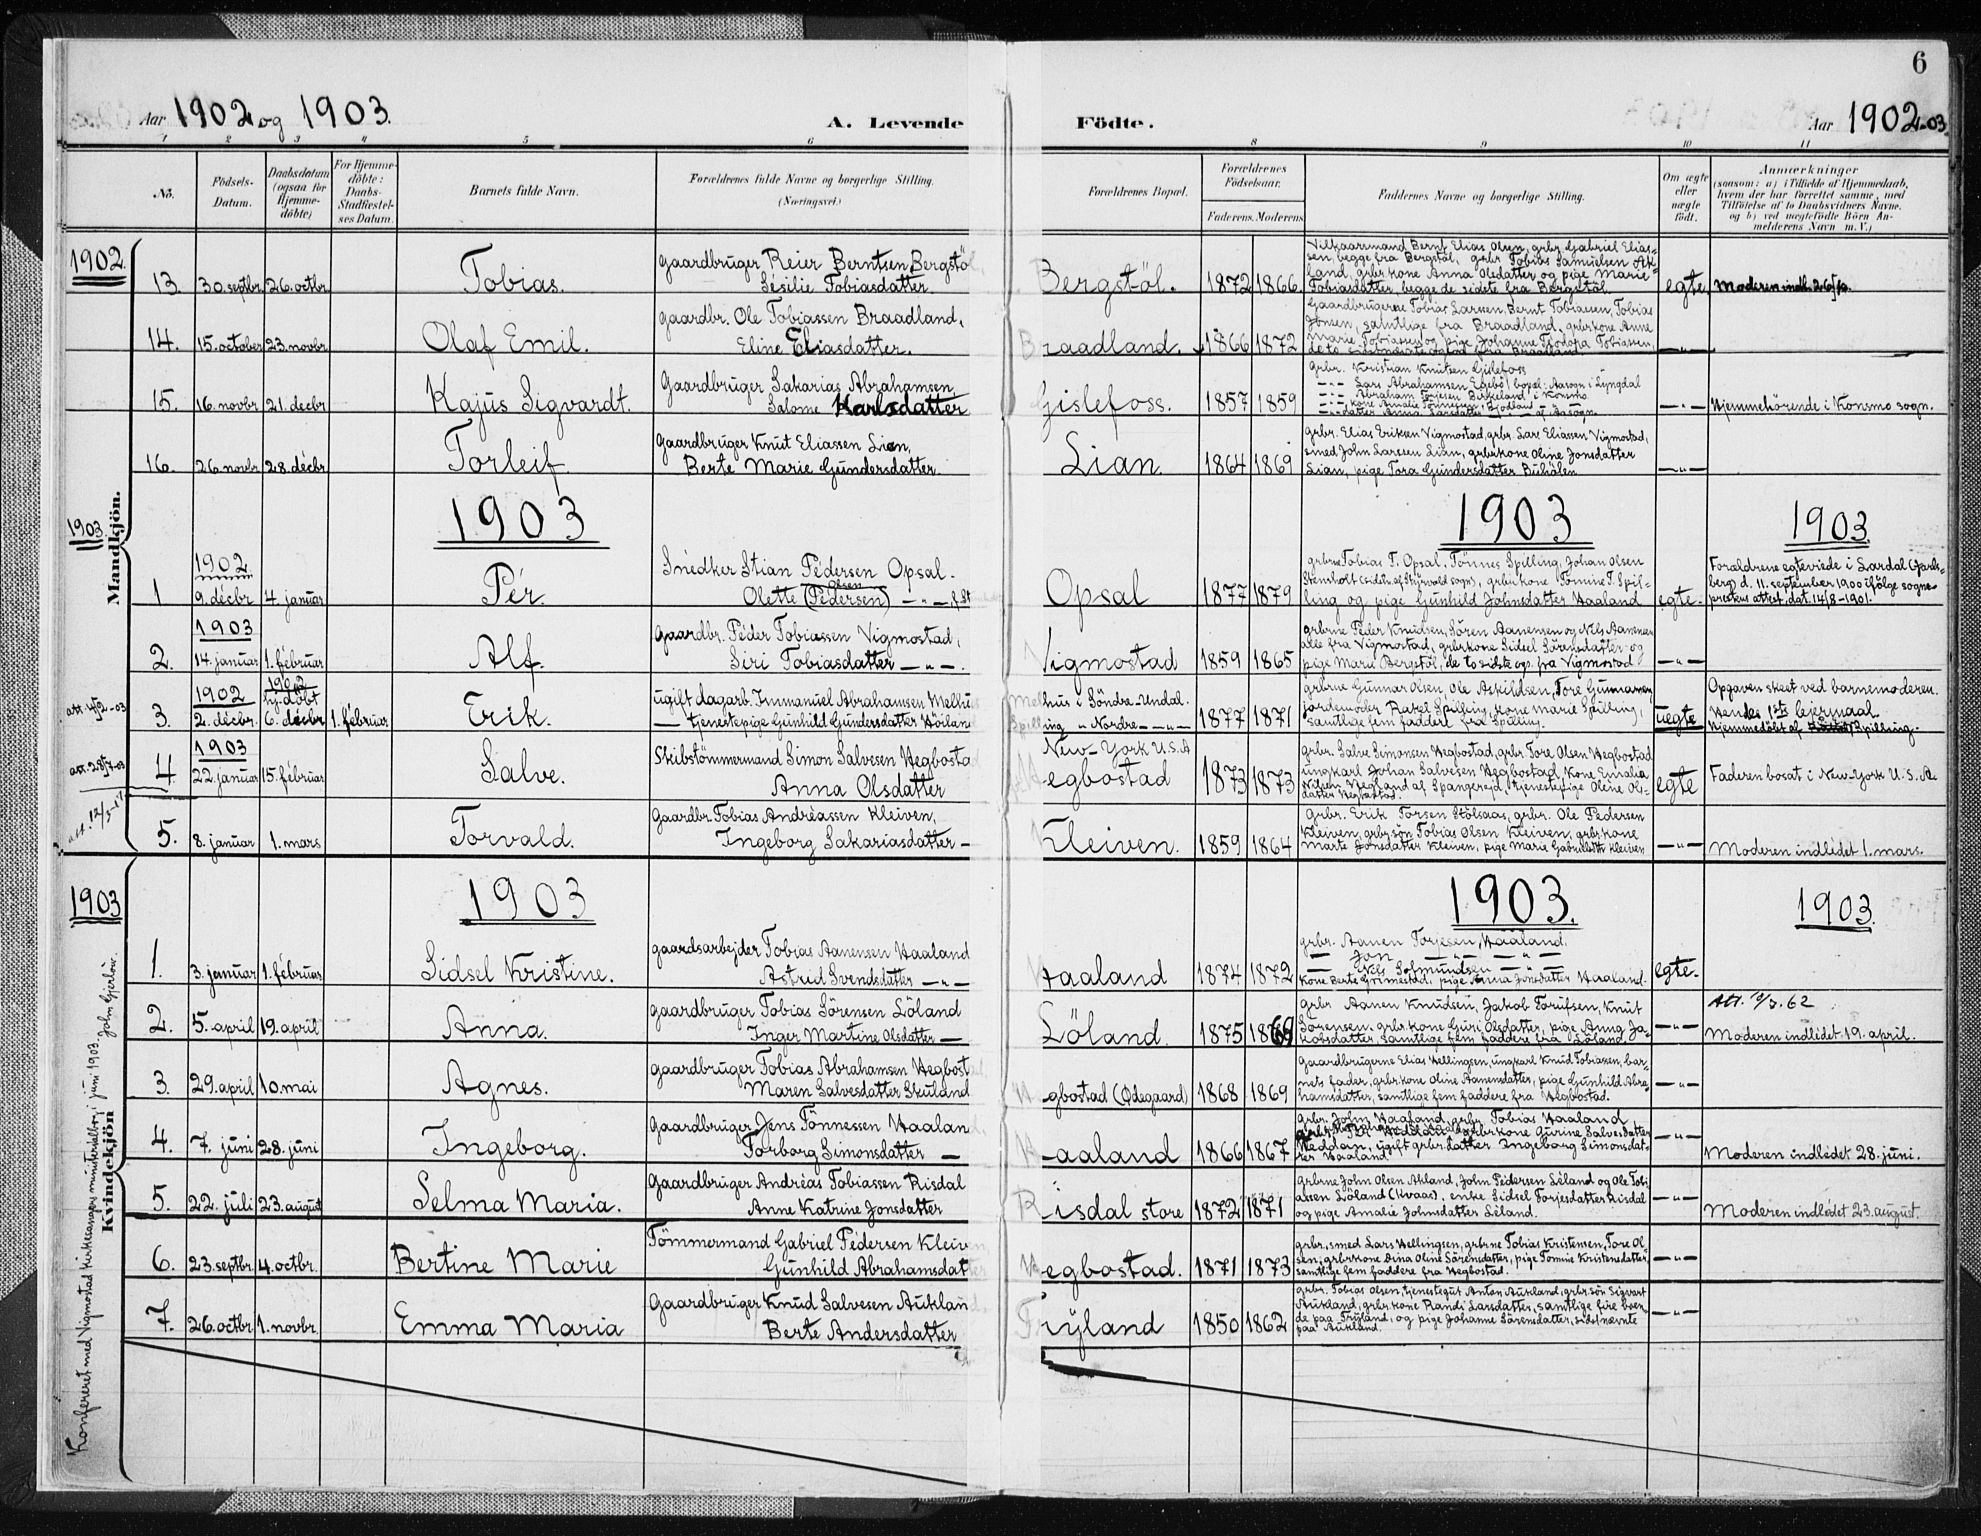 6
Aar 1902 og 1903.
A. Levende Födte.
Aar 1902-03.
1 2 3 4 5 6 8 9 10 11
No.
Födsels-
Datum.
Daabsdatum
(ogsaa for
Hjemme-
döbte)
For Hjemme-
döbte:
Daabs-
Stadfæstel-
ses Datum.
Barnets fulde Navn.
Forældrenes fulde Navne og borgerlige Stilling.
(Næringsvei.)
Forældrenes Bopæl.
Forældrenes
Födselsaar.
Faderens. Moderens.
Faddernes Navne og borgerlige Stilling.
Om ægte
eller
uægte
født.
Anmærkninger
(saasom: a) i Tilfælde af Hjemmedaab,
hvem der har forrettet samme, med
Tilföielse af to Daabsvidners Navne,
og b) ved uægtefödte Börn An-
melderens Navn m. V.)
Mandkjön.
1902
13. 30. septbr. 26. octbr. Tobias.
Gaardbruger Reier Berntsen Bergstöl,
Sesilie Tobiasdatter
Bergstöl. 1872 1866
Vilkaarsmand Bernt Elias Olsen, grbr. Gabriel Elias-
sen, begge fra Bergstöl, grbr. Tobias Samuelsen Ak-
land, grbr.kone Anna Olsdatter og pige Marie
Tobiasdatter, begge de sidste fra Bergstöl.
egte. Moderen indl. 26/10.
14. 15. october 23. novbr. Olaf Emil.
Gaardbr. Ole Tobiassen Braadland,
Eline Eliasdatter.
Braadland. 1866 1872
Gaardbrugerne Tobias Larssen, Bernt Tobiassen, Tobias
Jonsen, samtlige fra Braadland, grbr.kone Anne
Marie Tobiassen og pige Johanne Teodora Tobiassen,
— " —
15. 16. novbr. 21. decbr. Kajus Sigvardt.
Gaardbruger Sakarias Abrahamsen
Salome Karlsdatter
Gislefoss. 1857 1859
Grbr. Kristian Knutsen Gislefoss
— " — Lars Abrahamsen Egebö, bopæl: Aasogn i Lyngdal
— " — Abraham Torjesen Birkeland i Konsmo
— " — Hjemmehörende i Konsmo sogn.
16. 26. novbr. 28. decbr. Torleif
Gaardbruger Knut Eliassen Lian,
Berte Marie Gundersdatter.
Lian. 1864 1869
grbr. Elias Eriksen Vigmostad, grbr. Lars Eliassen Vigmostad,
smed John Larssen Lian, grbr.kone Oline Jonsdatter
Lian, pige Tora Gundersdatter Buhölen
— " —
1903
1903 1903 1903
1 1902 9. decbr. 4. januar Per.
Snedker Stian Pedersen Opsal.
Olsen
Olette (Pedersen) — " —
Opsal 1877 1879
grbrne Tobias T. Opsal, Tönnes Spilling, Johan Olsen
Stenholt (sidst. af Skjervold sogn), grbr.kone Tomine T. Spil-
ling og pige Gunhild Johnsdatter Haaland
egte.
Forældrene egteviede i Lardal (Jarls-
berg) d. 11. september 1900 ifölge sogne-
prestens attest, dat. 14/8-1901.
2. 1903 14. januar 1. februar Alf.
Gaardbr. Peder Tobiassen Vigmostad,
Siri Tobiasdatter — " —.
Vigmostad 1859 1865
grbrne Peder Knudsen, Sören Aanensen og Nils Aanensen
alle fra Vigmostad, grbr.kone Sidsel Sörensdatter og
pige Mari Bergstöl, de to sidste ogs. fra Vigmostad
— " —
3. 1902 2. decbr. 1902 hj.döbt 6. decbr. 1. februar Erik.
ugift dagarb. Immanuel Abrahamsen Melhus
— tjenestepige Gunhild Gundersdatter Höiland
Melhus i Söndre-Undal.
Spilling " Nordre — " —
1877 1871
grbrne Gunnar Olsen, Ole Askildsen, Tore Gunnarsen,
jordemoder Rakel Spilling, kone Marie Spilling,
samtlige fem faddere fra Spilling.
uegte
Opgaven skeet ved barnemoderen.
Hendes 1ste leiermaal.
Hjemmedöbt af Spilling.
4. 1903 22. januar 15. februar Salve.
Skibstömmermand Simon Salvesen Hegbostad
Anna Olsdatter
New-York U.S.A
Hegbostad 1873 1873
grbr. Salve Simonsen Hegbostad, grbr. Tore Olsen Hegbostad
ungkarl Johan Salvesen Hegbostad, kone Emalia
Nilsen Vegland af Spangereid, tjenestepige Oline Ols-
datter Hegbostad.
egte Faderen bosat i New-York U.S.A.
5. 8. januar 1. mars Torvald.
Gaardbr. Tobias Andreassen Kleiven,
Ingeborg Sakariasdatter —
Kleiven. 1859 1864
Grbr. Erik Torsen Stölsaas, grbr. Ole Pedersen
Kleiven, grbr.sön Tobias Olsen Kleiven, grbr.kone
Marte Jonsdatter Kleiven, pige Marie Gabrielsdttr Kleiven
— " — Moderen indledet 1. mars.
Kvindekjön
Konfereret med Vigmostad kirkesangers ministerialbog i juni 1903. John Gjerlöw.
1903
1903 1903. 1903.
1. 3. januar 1. februar Sidsel Kristine.
gaardsarbejder Tobias Aanensen Haaland
Astrid Svendsdatter — " —
Haaland 1874 1872
grbr. Aanen Torjesen, Haaland.
— Jon — " — " —
— Nils Salmundsen — " —
Kone Berte Grimestad, pige Anna Jonsdatter Haaland.
egte.
2. 5. april 19. april Anna.
gaardbruger Tobias Sörensen Löland
Inger Martine Olsdatter —
Löland. 1875 1869
grbr. Aanen Knudsen, Jakob Torufsen, Knut
Sörensen, grbr.kone Guri Olsdatter, pige Anna Ja-
kobsdatter samtlige fem faddere fra Löland.
— " —
Moderen indledet 19. april.
3. 29. april 10. mai Agnes.
gaardbruger Tobias Abrahamsen Hegbostad
Maren Salvesdatter Skuland
Hegbostad (Ødegaard) 1868 1869
Gaardbrugerne Elias Hellingsen, ungkarl Knud Tobiassen, bar-
nets fader, grbr.kone Oline Aanensdatter, pige Gunhild Abra-
hamsdatter, samtlige fem faddere fra Hegbostad.
— " —
4. 7. juni 28. juni Ingeborg.
Gaardbruger Jens Tönnessen Haaland
Torborg Simonsdatter —
Haaland 1866 1867
Grbr. John Haaland, grbr. Tobias Haaland
grbr.kone Gurine Salvesdatter
Heddan, ugift grbr.datter Ingeborg Simonsdat-
ter Haaland.
— " — Moderen indledet 28. juni.
5. 22. juli 23. august Selma Maria.
Gaardbruger Andreas Tobiassen Risdal
Anne Katrine Jonsdatter
Risdal store 1872 1871
Grbrne John Olsen Akland, John Pedersen Leland og Ole Tobi-
assen Löland (Kvaas), enke Sidsel Torjesdatter Risdal
og pige Amalie Johnsdatter Leland.
— " — Moderen indledet 23. august.
6. 23. septbr. 4. octbr. Bertine Marie
Tömmermand Gabriel Pedersen Kleiven
Gunhild Abrahamsdatter
Hegbostad. 1871 1873
grbr., smed Lars Hellingsen, grbrne Tobias Kristensen, Tore Ol-
sen, grbr.kone Dina Oline Sörensdatter, pige Tomine Kristensdatter,
samtlige fem faddere fra Hegbostad.
— " —
7. 26. octbr. 1. novbr. Emma Maria
Gaardbruger Knud Salvesen Aukland
Berte Andersdatter
Fryland 1850 1862
grbr. Tobias Olsen, tjenestegut Anton Aukland, grbr.sön Sigvart
Aukland, grbr.kone Randi Larsdatter, samtlige fire boen-
de paa Fryland, og pige Johanne Sörensdatter, sidstnævnte
paa Aukland.
— " —